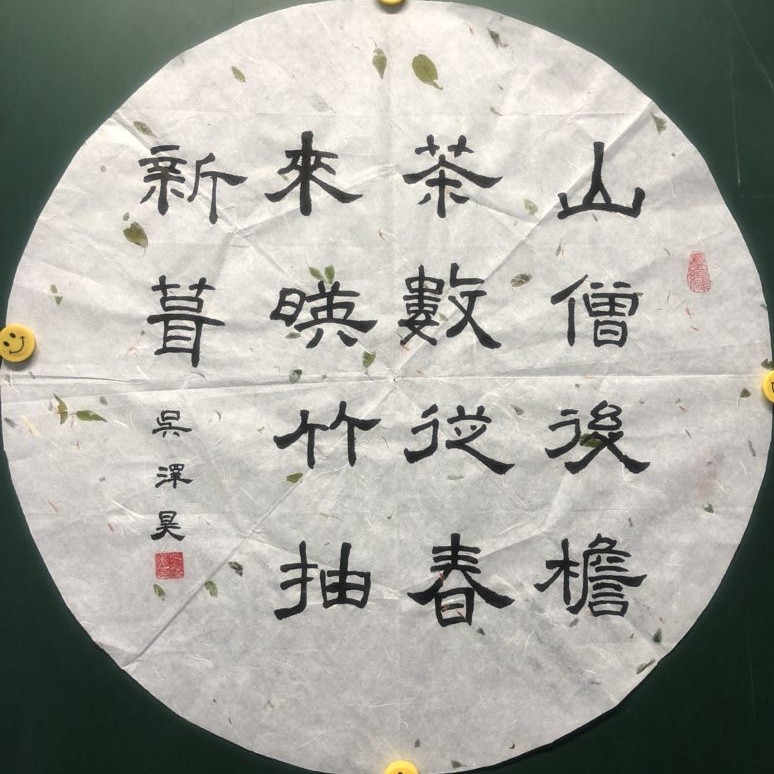 山僧後檐
茶數從春
來暎竹抽
新茸
吳澤昊